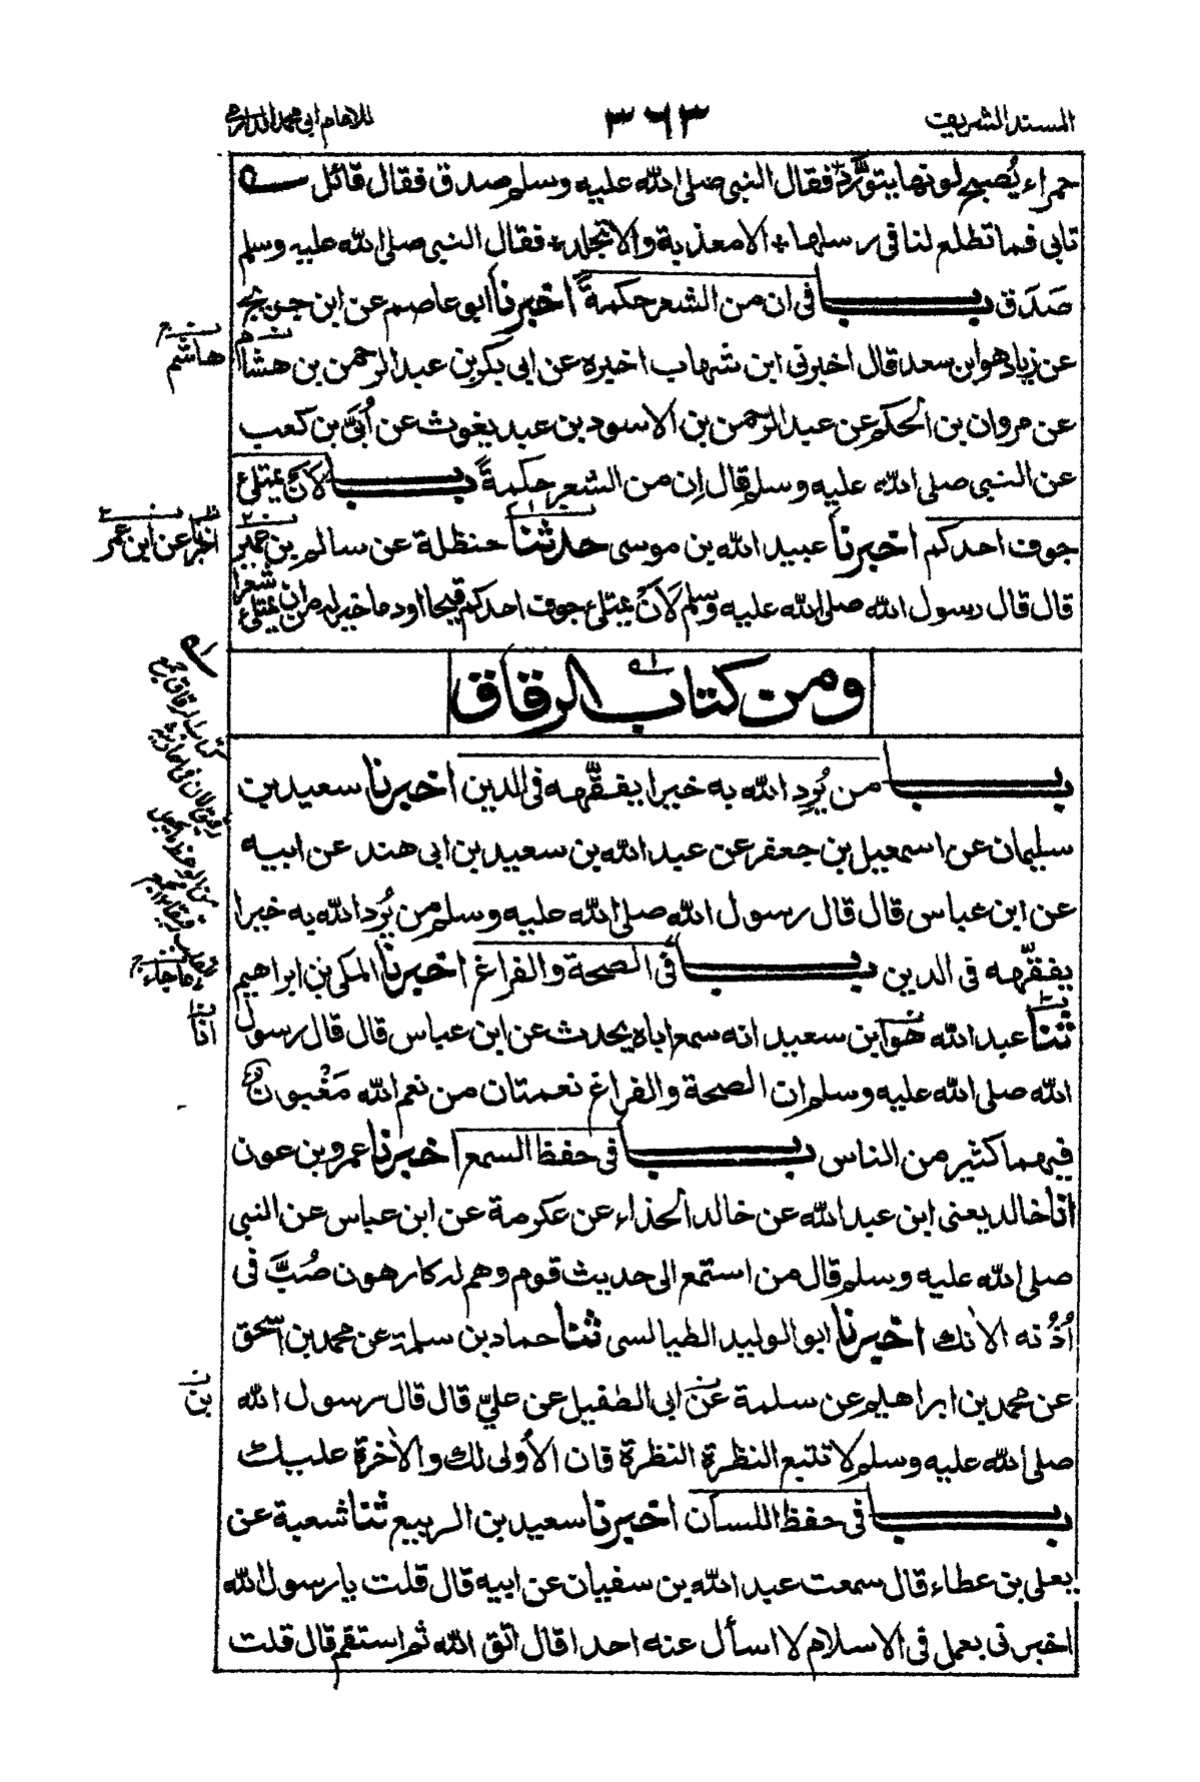 المسند الشريف
٣٦٣
للامام ابي محمد الدارمي
حمراء يُصبح لونها يتورَّد فقال النبي صلى الله عليه وسلم صدق فقال قائل
تابى فما تطلع لنا في رسلها * الا معذبة والا تجلد * فقال النبي صلى الله عليه وسلم
صَدَق باب في ان من الشعر حكمةً اخبرنا ابو عاصم عن ابن جريج
عن زياد هو ابن سعد قال اخبرني ابن شهاب اخبره عن ابي بكر بن عبد الرحمن بن هشام
هاشم
عن مروان بن الحكم عن عبد الرحمن بن الاسود بن عبد يغوث عن أُبَيّ بن كعب
عن النبي صلى الله عليه وسلم قال اِن من الشعر حكمةً باب لَاَنْ يمتلئ
جوف احدكم اخبرنا عبيد الله بن موسى حدثنا حنظلة عن سالم بن عمير
اخبرنا عن ابن عمر
قال قال رسول الله صلى الله عليه وسلم لَاَنْ يمتلئ جوف احدكم قيحا او دما خير له من ان يمتلئ شعرا
ومن كتاب الرقاق
باب من يُرِد الله به خيرا يفقّهه في الدين اخبرنا سعيد بن
سليمان عن اسمعيل بن جعفر عن عبد الله بن سعيد بن ابي هند عن ابيه
عن ابن عباس قال قال رسول الله صلى الله عليه وسلم من يُرِد الله به خيرا
يفقّهه في الدين باب في الصحة والفراغ اخبرنا المكي بن ابراهيم
ما جاء
ثنا عبد الله هو ابن سعيد انه سمع اباه يحدث عن ابن عباس قال قال رسول
انا
الله صلى الله عليه وسلم ان الصحة والفراغ نعمتان من نعم الله مَغْبون
فيهما كثير من الناس باب في حفظ السمع اخبرنا عمرو بن عون
انا خالد يعني ابن عبد الله عن خالد الحذاء عن عكرمة عن ابن عباس عن النبي
صلى الله عليه وسلم قال من استمع الى حديث قوم وهم له كارهون صُبَّ في
اُذُنه الاٰنك اخبرنا ابو الوليد الطيالسي ثنا حماد بن سلمة عن محمد بن اسحق
عن محمد بن ابراهيم عن سلمة عن ابي الطفيل عن عليّ قال قال رسول الله
بن
صلى الله عليه وسلم لا تتبع النظرة النظرة فان الاُولى لك والاٰخرة عليك
باب في حفظ اللسان اخبرنا سعيد بن الربيع ثنا شعبة عن
يعلى بن عطاء قال سمعت عبد الله بن سفيان عن ابيه قال قلت يا رسول الله
اخبرني بعمل في الاسلام لا اسأل عنه احدا قال اتق الله ثم استقم قال قلت